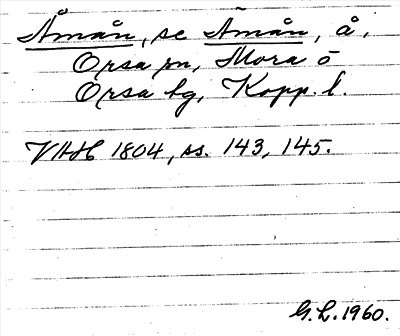 Åmån, se Ämån, å,
Orsa sn, Mora o
Orsa tg, Kopp. l.
VAH 1804, ss. 143, 145.
G.L. 1960.